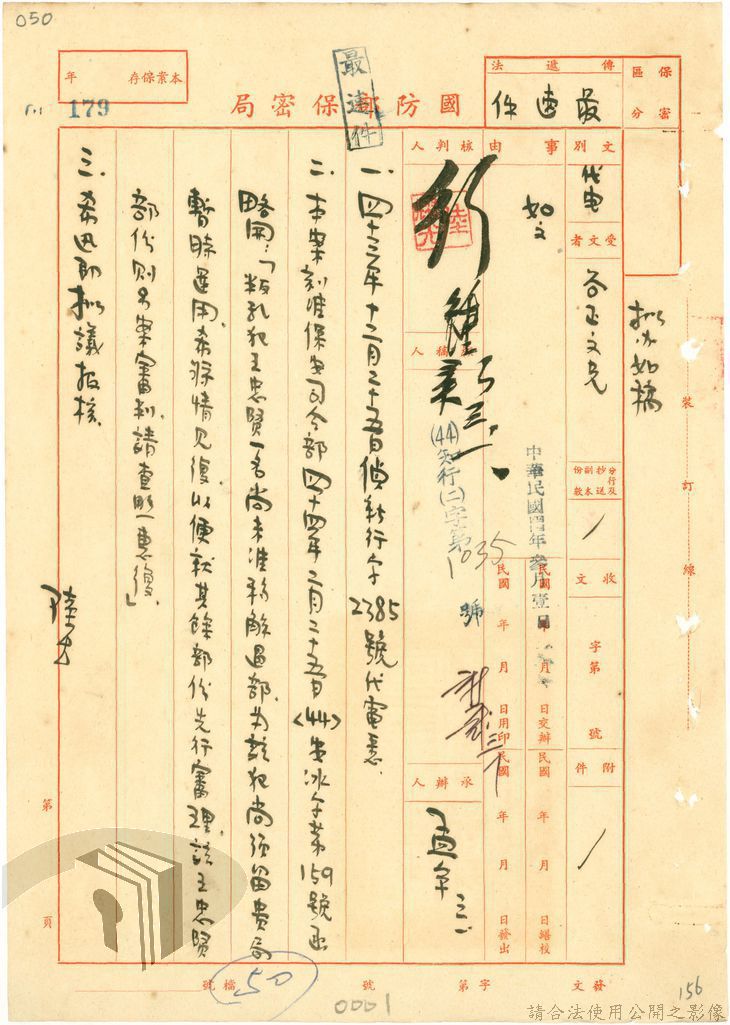 050
保密區分
傳遞法
最速件
國防部保密局
最速件
本案保存 年
179
擬办如稿
裝訂線
文別
代电
受文者
谷正文兄
分行及抄送副本份數
收文 字第 號
附件
事由
如文
中華民國四四年參月壹日
民國 年 月 日交辦
民國 年 月 日繕校
民國 年 月 日用印
民國 年 月 日發出
核判人
核稿人
承辦人
(44)
行(二)字第1035號
一、四十三年十二月二十五日偵執行字2385號代電悉.
二、本案刻准保安司令部四十四年二月二十五日<44>安冰字第159號函
略開:「叛乱犯王忠賢一名尚未准移解過部,如該犯尚須留貴局
暫時運用,希將情見復,以便就其餘部份先行審理,該王忠賢
部份則另案審判,請查照惠復。」
三、希迅即擬議報核.
第 頁
發文 字第 號
檔號
50
0001
156
請合法使用公開之影像